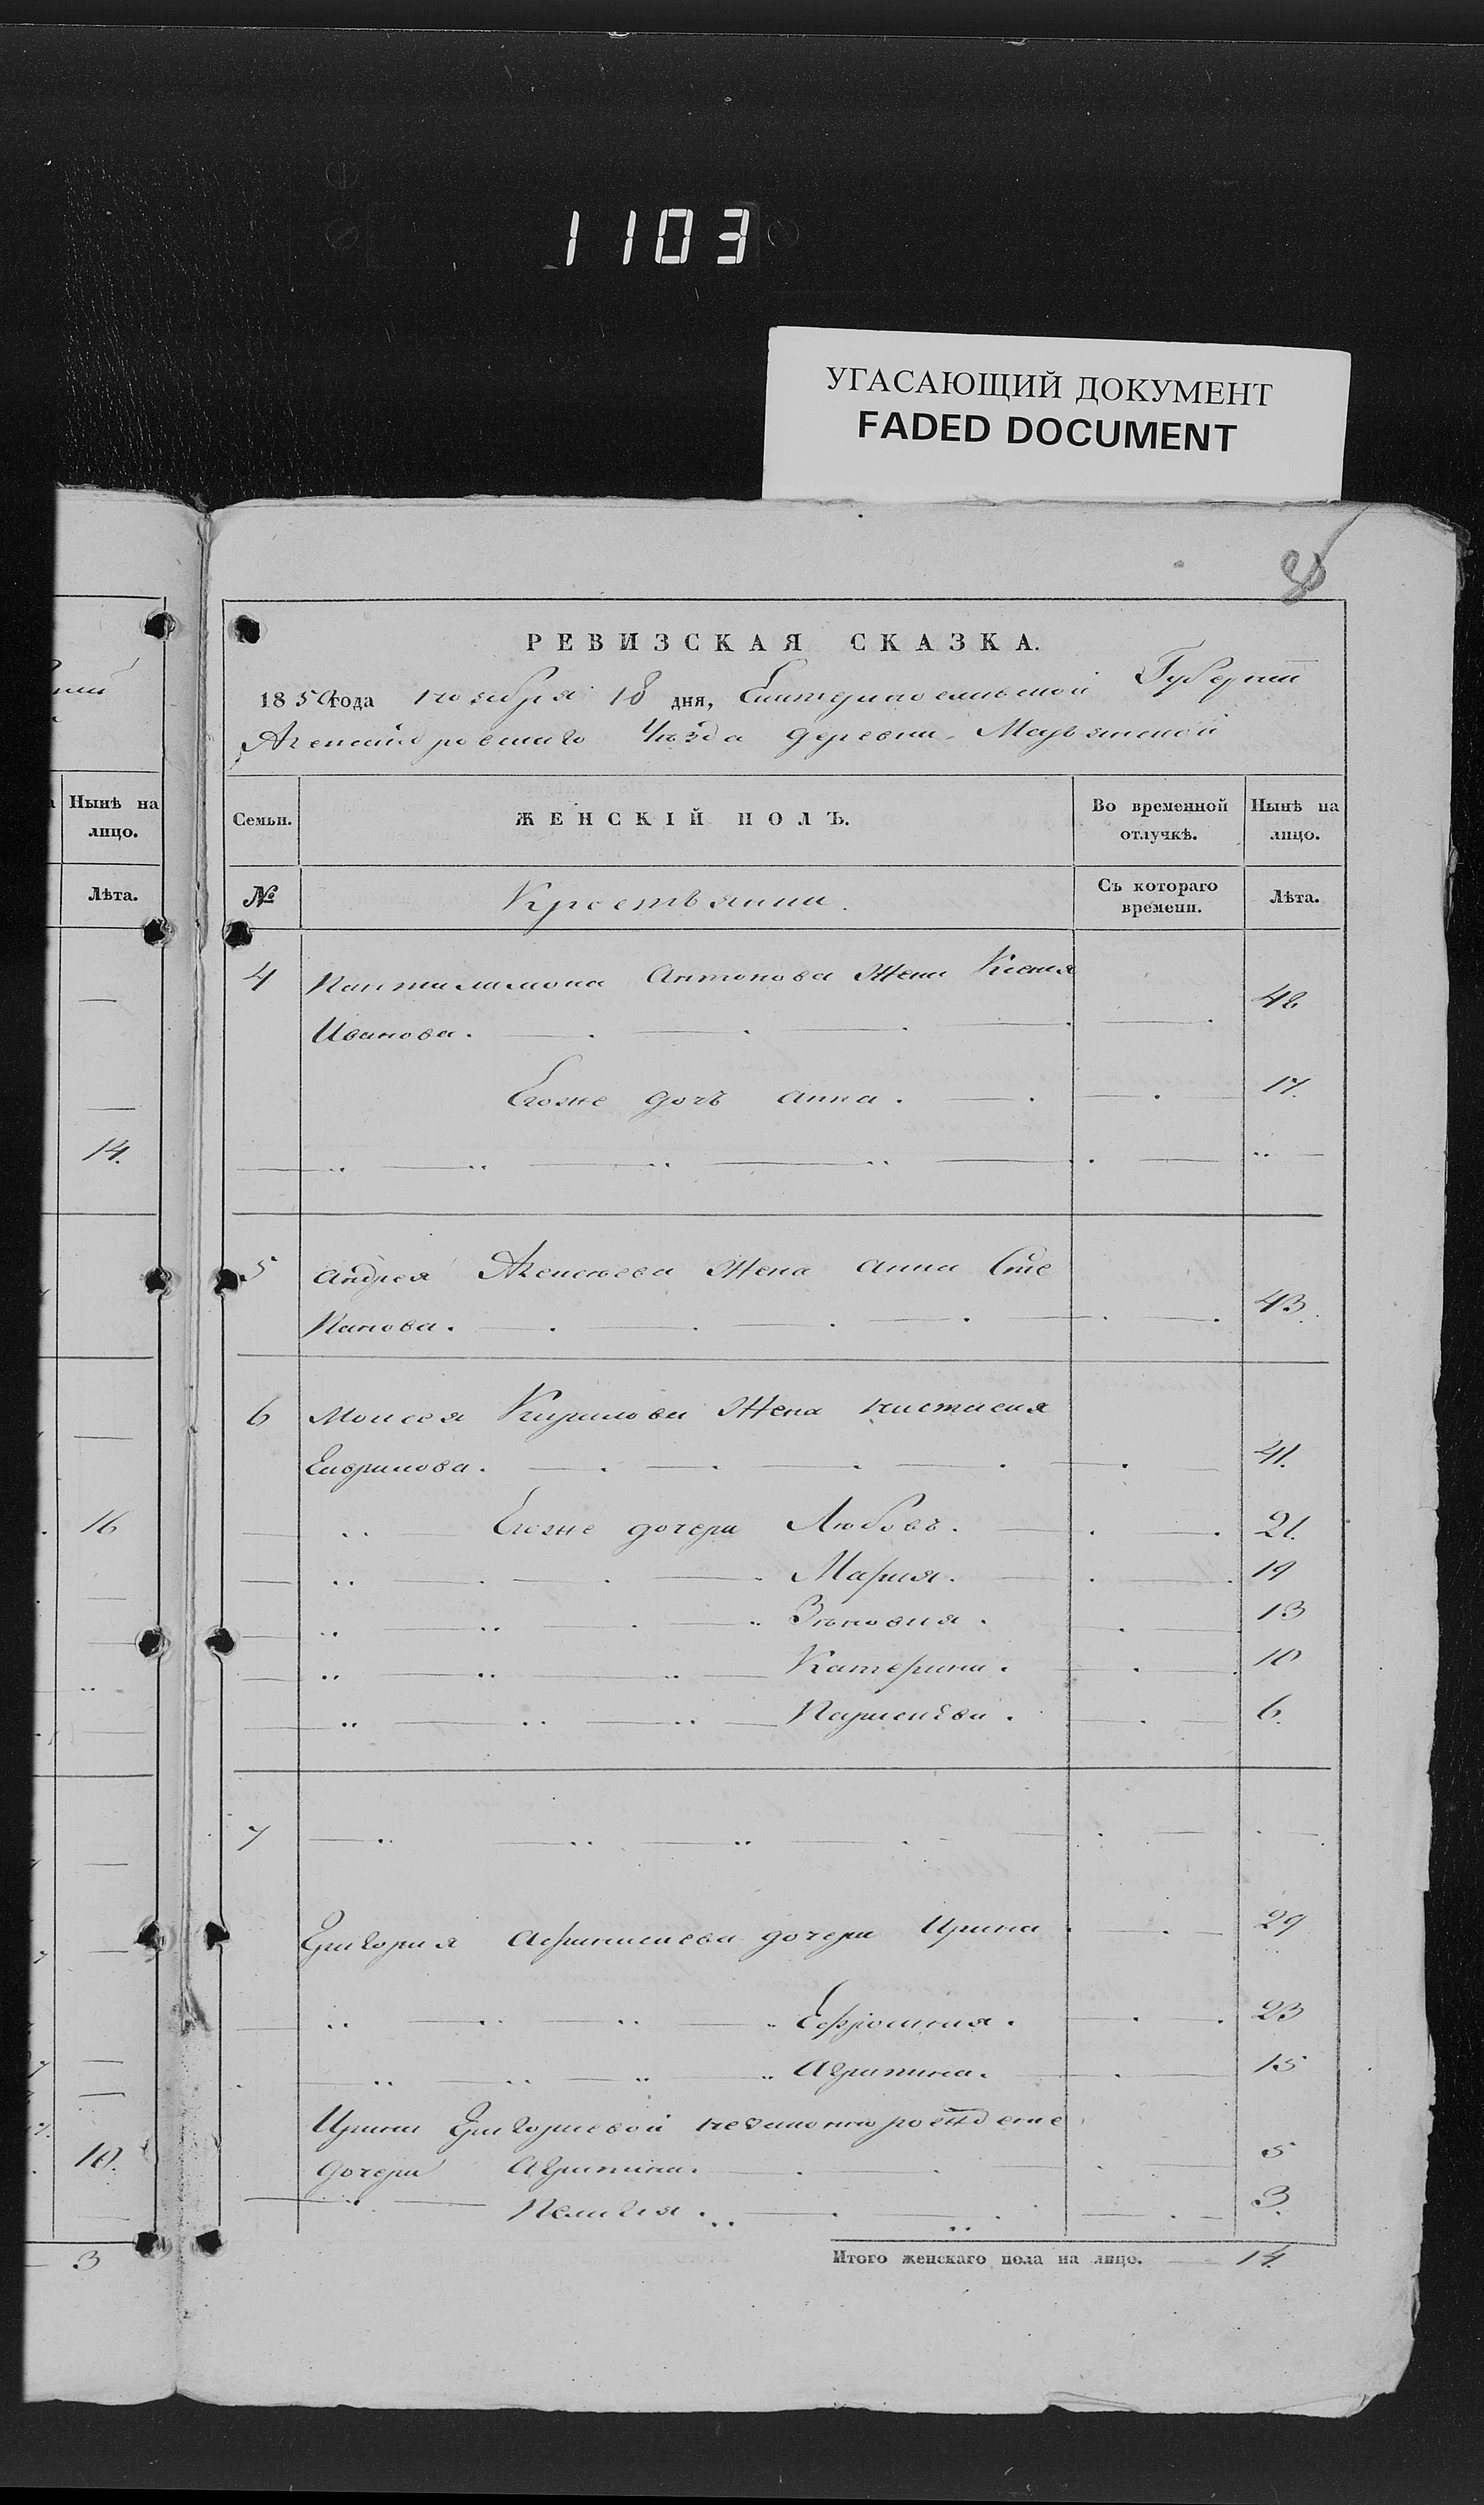 1103
УГАСАЮЩИЙ ДОКУМЕНТ
FADED DOCUMENT
8
РЕВИЗСКАЯ СКАЗКА.
1850 года ноября 18 дня, Екатеринославской Губернии
Александровскаго Уѣзда деревни Марьянской
Нынѣ на
лицо.
Лѣта.
14.
16
10.
3
Семьи.
ЖЕНСКІЙ ПОЛЪ.
Во временной
отлучкѣ.
Нынѣ на
лицо.
№
Крестьянии.
Съ котораго
времени.
Лѣта.
4 Пантилимона Антонова Жена Ксения
Иванова. 48
Егоже дочь Анна. 17.
5 Андрея Алексеева Жена Анна Сте
панова. 43.
6 Моисея Кирилова Жена настасия
Гаврилова. 41.
Егоже дочери Любовь. 21.
Мария. 19
Зиновия. 13
Катерина. 10
Парасковя. 6.
7
Григория Афанасиева дочери Ирина 29
Ефросиния. 23
Агрипина. 15
Ирины Григориевой незаконнорожденые
дочери Агрипина. 5
Пелагия. 3.
Итого женскаго пола на лицо. 14.